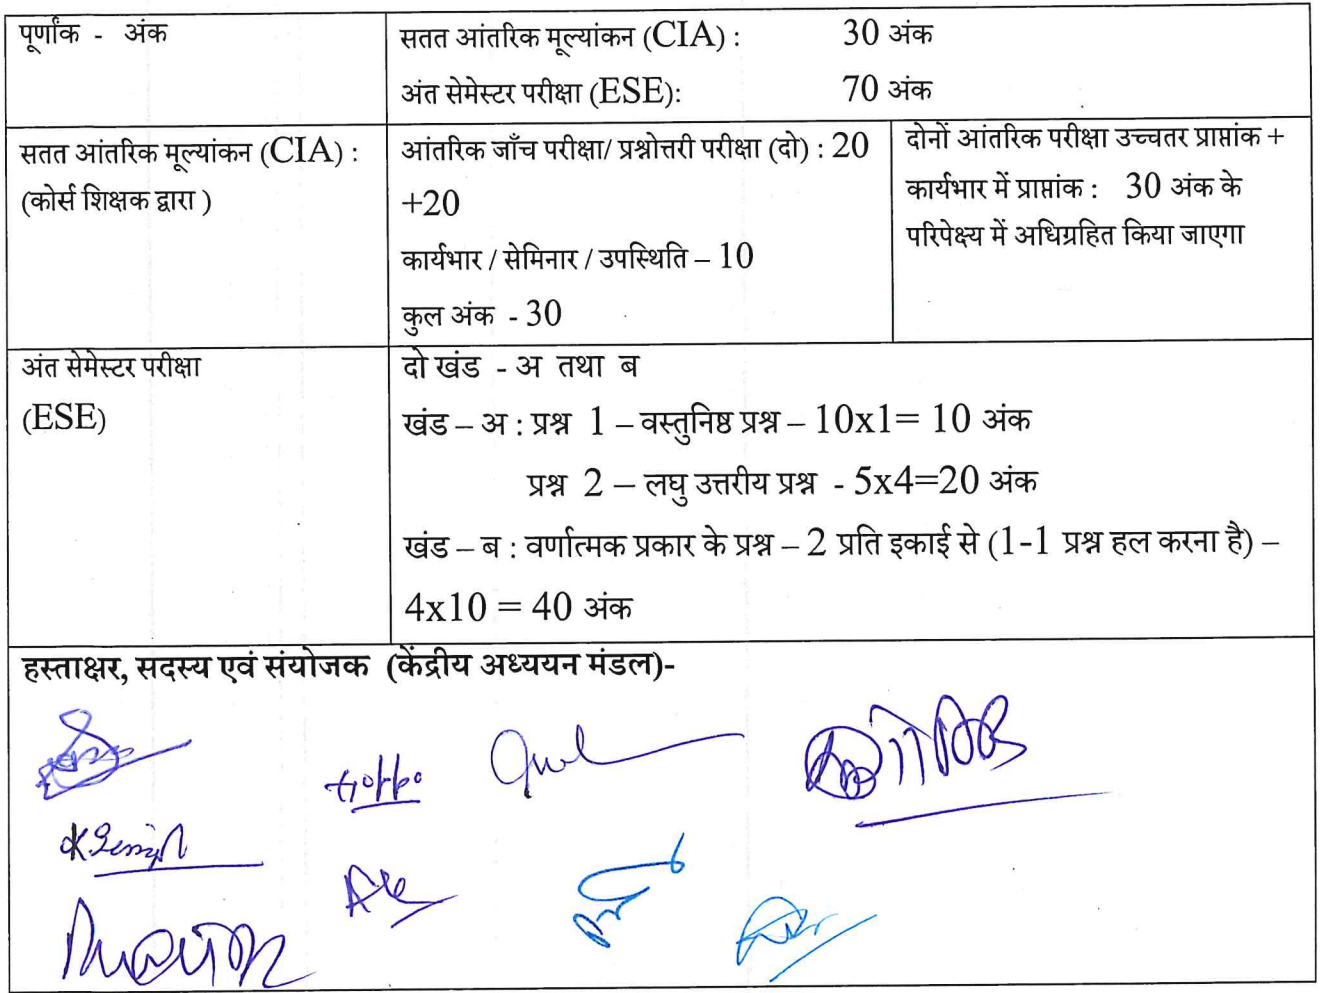 पूर्णांक - अंक
सतत आंतरिक मूल्यांकन (CIA) : 30 अंक
अंत सेमेस्टर परीक्षा (ESE): 70 अंक
सतत आंतरिक मूल्यांकन (CIA) :
(कोर्स शिक्षक द्वारा )
आंतरिक जाँच परीक्षा/ प्रश्नोत्तरी परीक्षा (दो) : 20
+20
कार्यभार / सेमिनार / उपस्थिति – 10
कुल अंक - 30
दोनों आंतरिक परीक्षा उच्चतर प्राप्तांक +
कार्यभार में प्राप्तांक : 30 अंक के
परिपेक्ष्य में अधिग्रहित किया जाएगा
अंत सेमेस्टर परीक्षा
(ESE)
दो खंड - अ तथा ब
खंड – अ : प्रश्न 1 – वस्तुनिष्ठ प्रश्न – 10x1= 10 अंक
प्रश्न 2 – लघु उत्तरीय प्रश्न - 5x4=20 अंक
खंड – ब : वर्णात्मक प्रकार के प्रश्न – 2 प्रति इकाई से (1-1 प्रश्न हल करना है) –
4x10 = 40 अंक
हस्ताक्षर, सदस्य एवं संयोजक (केंद्रीय अध्ययन मंडल)-